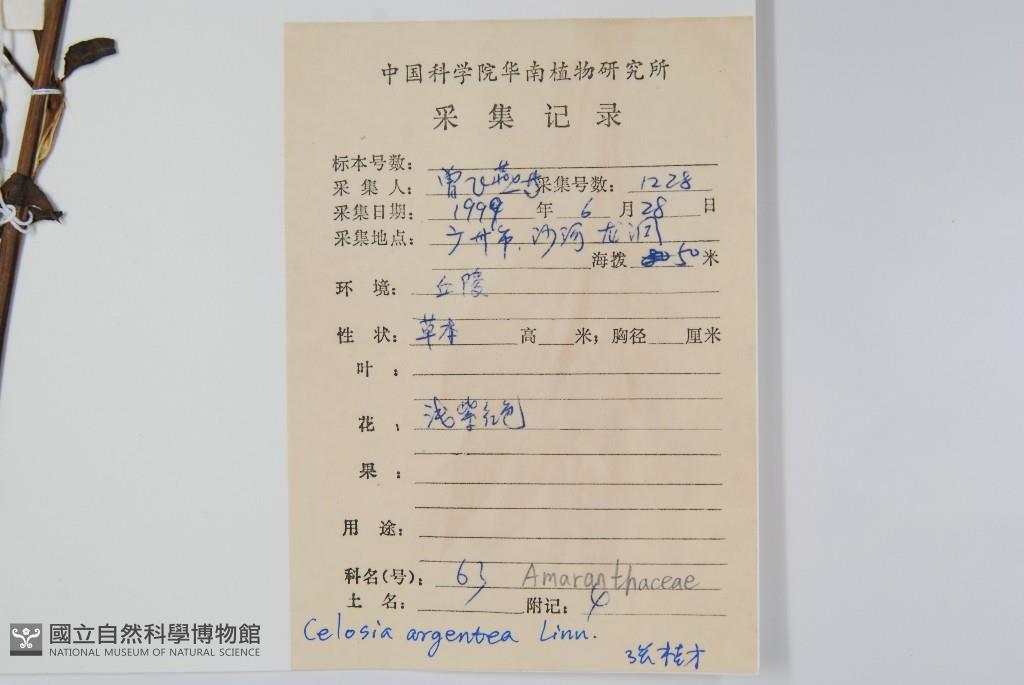 中国科学院华南植物研究所
采集记录
标本号数：
采集人：曾飞燕 采集号数：1228
采集日期：1999年6月28日
采集地点：广州市.沙河 龙洞
海拨 50米
环境：丘陵
性状：草本 高 米；胸径 厘米
叶：
花：浅紫红色
果：
用途：
科名(号)：63 Amaranthaceae
土名： 附记：4
Celosia argentea Linn.
张桂才
國立自然科學博物館
NATIONAL MUSEUM OF NATURAL SCIENCE